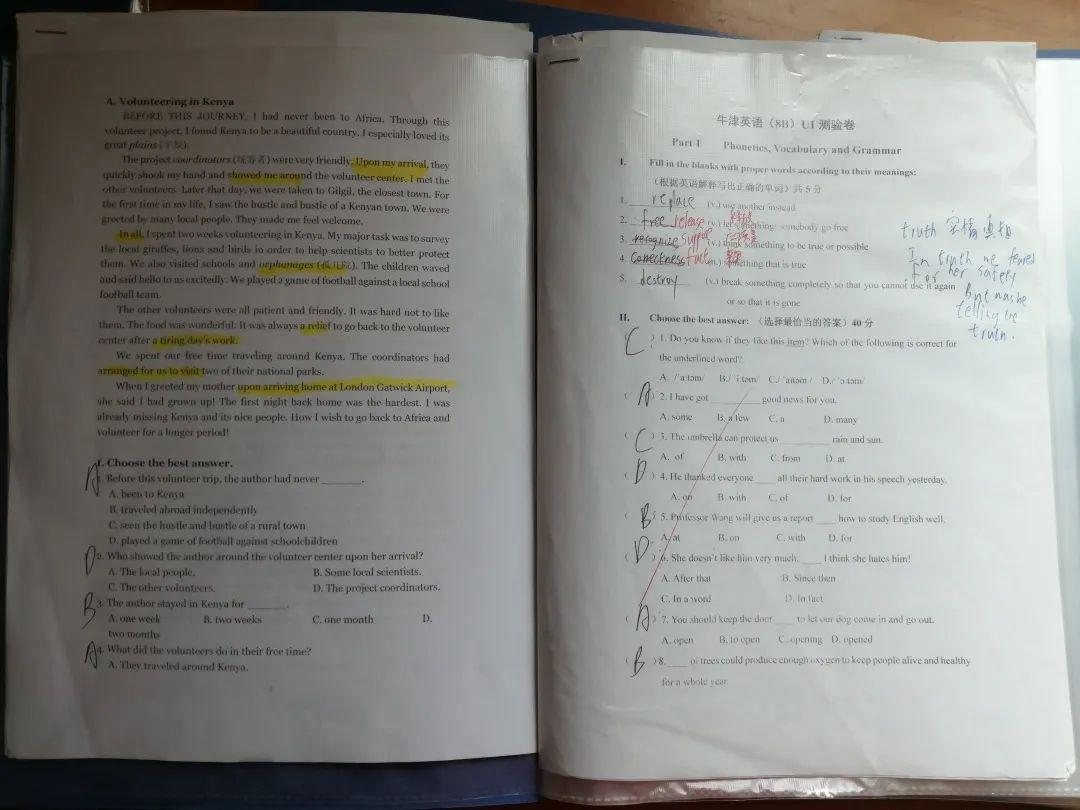 A. Volunteering in Kenya
BEFORE THIS JOURNEY, I had never been to Africa. Through this
volunteer project, I found Kenya to be a beautiful country. I especially loved its
great plains (平原).
The project coordinators (统筹者) were very friendly. Upon my arrival, they
quickly shook my hand and showed me around the volunteer center. I met the
other volunteers. Later that day, we were taken to Gilgil, the closest town. For
the first time in my life, I saw the hustle and bustle of a Kenyan town. We were
greeted by many local people. They made me feel welcome.
In all, I spent two weeks volunteering in Kenya. My major task was to survey
the local giraffes, lions and birds in order to help scientists to better protect
them. We also visited schools and orphanages (孤儿院). The children waved
and said hello to us excitedly. We played a game of football against a local school
football team.
The other volunteers were all patient and friendly. It was hard not to like
them. The food was wonderful. It was always a relief to go back to the volunteer
center after a tiring day's work.
We spent our free time traveling around Kenya. The coordinators had
arranged for us to visit two of their national parks.
When I greeted my mother upon arriving home at London Gatwick Airport,
she said I had grown up! The first night back home was the hardest. I was
already missing Kenya and its nice people. How I wish to go back to Africa and
volunteer for a longer period!
I. Choose the best answer.
A 1. Before this volunteer trip, the author had never ______.
A. been to Kenya
B. traveled abroad independently
C. seen the hustle and bustle of a rural town
D. played a game of football against schoolchildren
D 2. Who showed the author around the volunteer center upon her arrival?
A. The local people. B. Some local scientists.
C. The other volunteers. D. The project coordinators.
B 3. The author stayed in Kenya for ______.
A. one week B. two weeks C. one month D.
two months
A 4. What did the volunteers do in their free time?
A. They traveled around Kenya.
牛津英语（8B）U1 测验卷
Part I Phonetics, Vocabulary and Grammar
I. Fill in the blanks with proper words according to their meanings:
（根据英语解释写出正确的单词）共 5 分
1. replace (v.) use another instead
2. free release (v.) let something/ somebody go free 释放
3. recognize suppose (v.) think something to be true or possible
4. correctness fact (n.) something that is true
5. destroy (v.) break something completely so that you cannot use it again
or so that it is gone
truth 实情 真相
In truth me feared
for her safety
But was he
telling the
truth.
II. Choose the best answer: （选择最恰当的答案）40 分
( C ) 1. Do you know if they like this item? Which of the following is correct for
the underlined word?
A. /ˈaːtəm/ B./ˈiːtəm/ C./ˈaɪtəm/ D./ˈɔːtəm/
( A ) 2. I have got ______ good news for you.
A. some B. a few C. a D. many
( C ) 3. The umbrella can protect us ______ rain and sun.
A. of B. with C. from D. at
( D ) 4. He thanked everyone ____ all their hard work in his speech yesterday.
A. on B. with C. of D. for
( B ) 5. Professor Wang will give us a report ____ how to study English well.
A. at B. on C. with D. for
( D ) 6. She doesn't like him very much. ____ I think she hates him!
A. After that B. Since then
C. In a word D. In fact
( A ) 7. You should keep the door ____ to let our dog come in and go out.
A. open B. to open C. opening D. opened
( B ) 8. ____ of trees could produce enough oxygen to keep people alive and healthy
for a whole year.